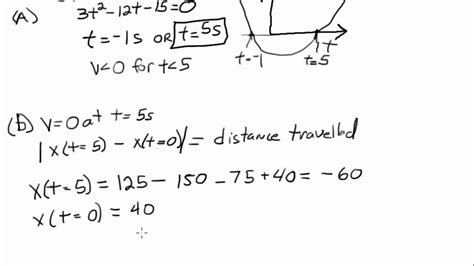 (A) 3t²-12t-15=0
t=-1s OR t=5s
v<0 for t<5
t=-1
t=5
t
(b) v=0 at t=5s
|x(t=5) - x(t=0)| = distance travelled
x(t=5) = 125 - 150 - 75 + 40 = -60
x(t=0) = 40